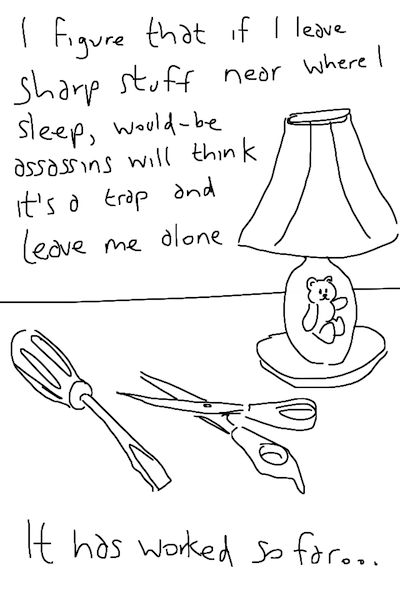 I figure that if I leave
sharp stuff near where I
sleep, would-be
assassins will think
it's a trap and
leave me alone
It has worked so far...